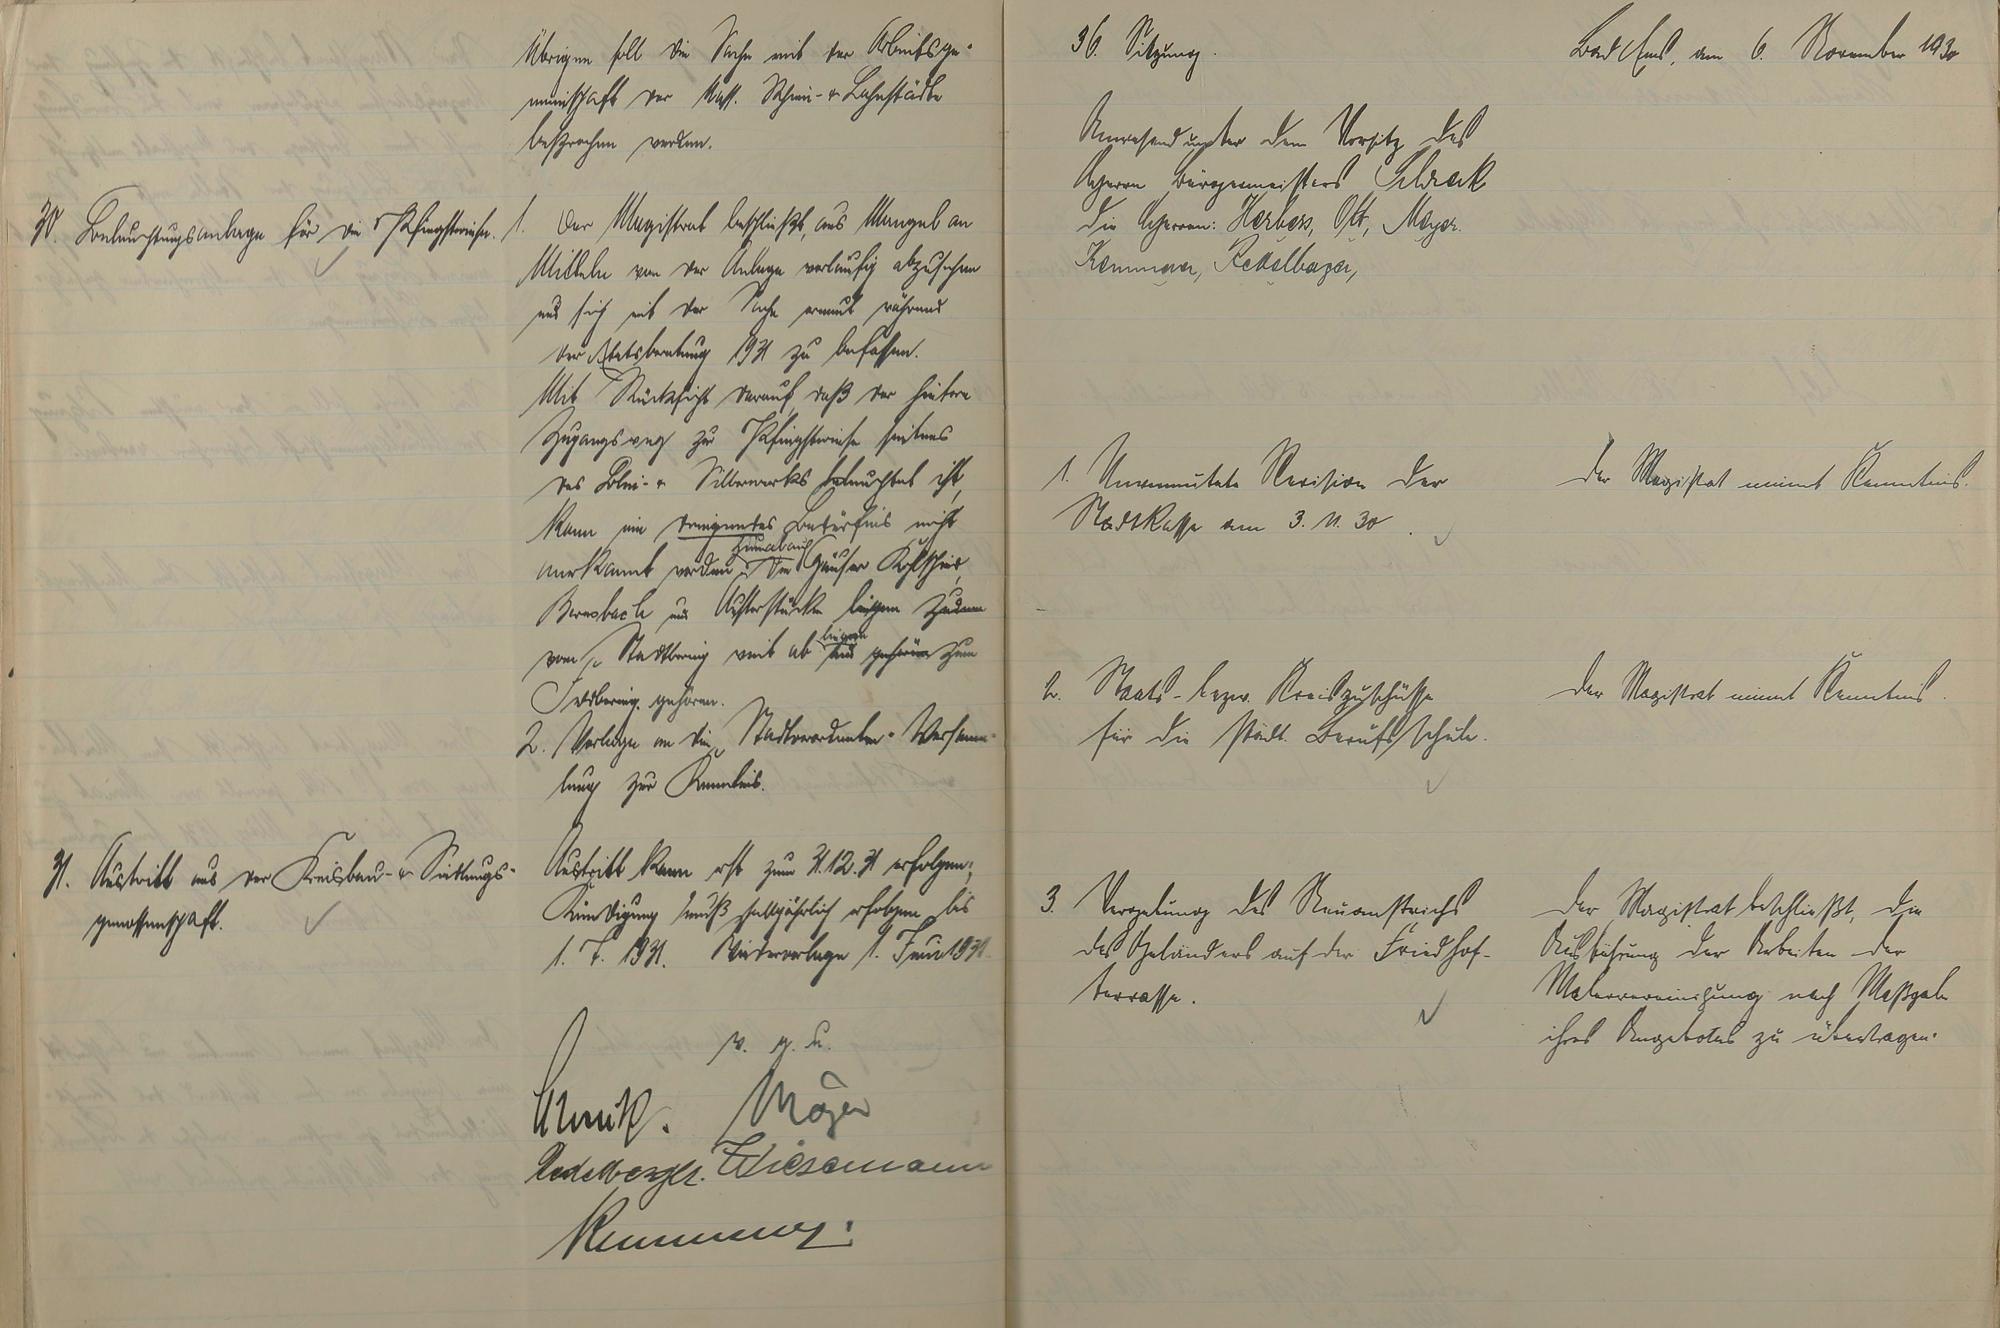 Übrigen soll die Sache mit der Arbeitsge-
meinschaft der Nass. Rhein- u. Lahnstädte
besprochen werden.
30. Beleuchtungsanlage für die Pfingstwiese.
1. Der Magistrat beschließt, aus Mangel an
Mitteln von der Anlage vorläufig abzusehen
und sich mit der Sache erneut während
der Etatsberatung 1931 zu befassen.
Mit Rücksicht darauf, daß der hintere
Zugangsweg zur Pfingstwiese seitens
des Blei- u. Silberwerks beleuchtet ist,
kann ein dringendes Bedürfnis nicht
anerkannt werden, zumal auch die Häuser
Bernbach und liegen zudem
vom Stadtbering weit ab liegen und gehören zum
Feldbering gehören.
2. Vorlage an die Stadtverordneten-Versamm-
lung zur Kenntnis.
31. Austritt aus der Kreisbau- u. Siedlungs-
genossenschaft.
Austritt kann erst zum 31.12.31 erfolgen;
Kündigung muß halbjährlich erfolgen bis
1. 7. 1931. Wiedervorlage 1. Juni 1931.
v. g. u.
Meyer
Redelberger. Wiesemann
Kemmerer
36. Sitzung.
Bad Ems, am 6. November 1930
Anwesend unter dem Vorsitz des
Herrn Bürgermeisters
die Herren: Herbers, Ott, Meyer.
Kemmerer, Redelberger,
1. Unvermutete Revision der
Stadtkasse am 3. 11. 30.
Der Magistrat nimmt Kenntnis.
2. Staats- bezw. Kreiszuschüsse
für die städt. Berufsschule.
Der Magistrat nimmt Kenntnis.
3. Vergebung des Neuanstrichs
des Geländers auf der Friedhof-
terrasse.
Der Magistrat beschließt, die
Ausführung der Arbeiten der
Malervereinigung nach Maßgabe
ihres Angebotes zu übertragen.